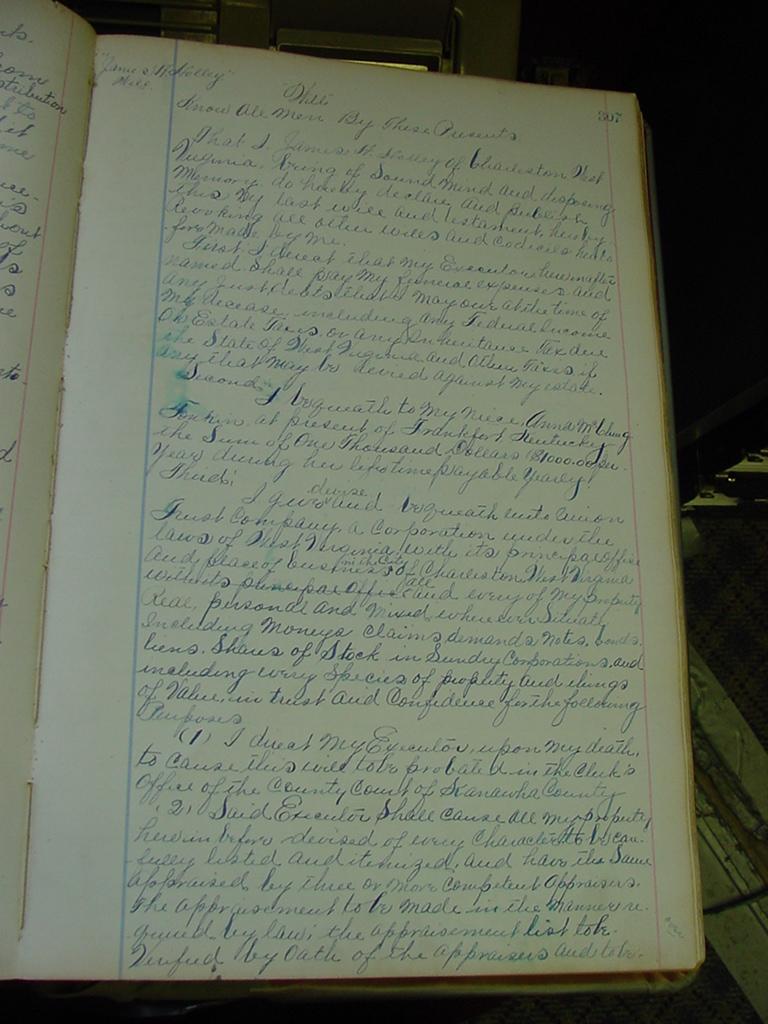 "James H Holley"
Will
307
"Will"
Know All Men By These Presents
That I, James H. Holley of Charleston West
Virginia, being of Sound Mind and disposing
Memory, do hereby declare and publish
this My last will and testament, hereby
Revoking all other wills and Codicils hereto
fore Made by Me.
First, I direct that My Executor hereinafter
named shall pay My funeral expenses and
any just debts that I May owe at the time of
My decease, including any Federal Income
or Estate Taxes, or any Inheritance Tax due
the State of West Virginia and Other Taxes if
any that May be levied against My estate.
Second, I bequeath to My Niece, Anna McClung
at present of Frankfort Kentucky,
the Sum of One Thousand Dollars ($1000.00) per
Year during her lifetime payable Yearly
Third;
I give devise and bequeath unto Union
Trust Company, a Corporation under the
laws of West Virginia, with its principal Office
and place of business in the City of Charleston, West Virginia
with its principal Office all and every of My property
Real, personal and Mixed, wherever Situate
Including Moneys Claims, demands, Notes, bonds,
liens, Shares of Stock in Sundry Corporations, and
including every Species of property and things
of Value, in trust and Confidence for the following
Purposes
(1) I direct My Executor, upon My death,
to cause this will to be probated in the Clerk's
Office of the County Court of Kanawha County
(2) Said Executor Shall cause all my property
herein before devised of every Character to be care-
fully listed and itemized, and have the Same
appraised by three or More Competent Appraisers.
The appraisement to be Made in the Manner re-
quired by law; the appraisement list to be
Verified by Oath of the appraisers and to be